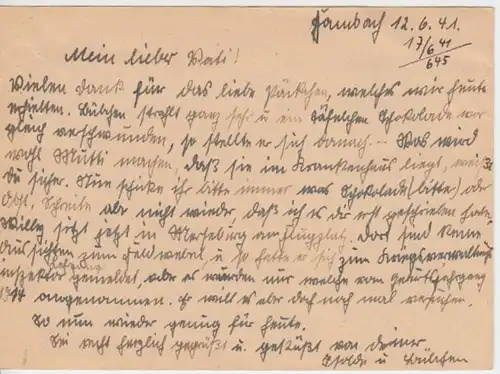 Hambach 12.6.41.
17/6 41
645
Mein lieber Vati!
Vielen Dank für das liebe Päckchen, welches wir heute
erhielten. Bübchen strahlt ganz sehr u ein Täfelchen Schokolade war
gleich verschwunden, so stellte er sich danach. – Was wird
wohl Mutti machen, daß sie im Krankenhaus liegt, weißt
du sicher. Nun schicke ihr bitte immer was Schokolade (bitter) oder
Obst. Schreibe aber nicht wieder, daß ich es dir erst geschrieben habe.
Willy sitzt jetzt in Merseburg am Flugplatz. Dort sind keine
Aussichten zum Feldwebel u so hatte er sich zum Kriegsverwaltungs
inspektor gemeldet, aber es wurden nur welche von Geburtsjahrgang
1914 angenommen. Er will es aber doch noch mal versuchen.
So nun wieder genug für heute.
Sei recht herzlich gegrüßt u. geküßt von deiner
Isolde u Bübchen